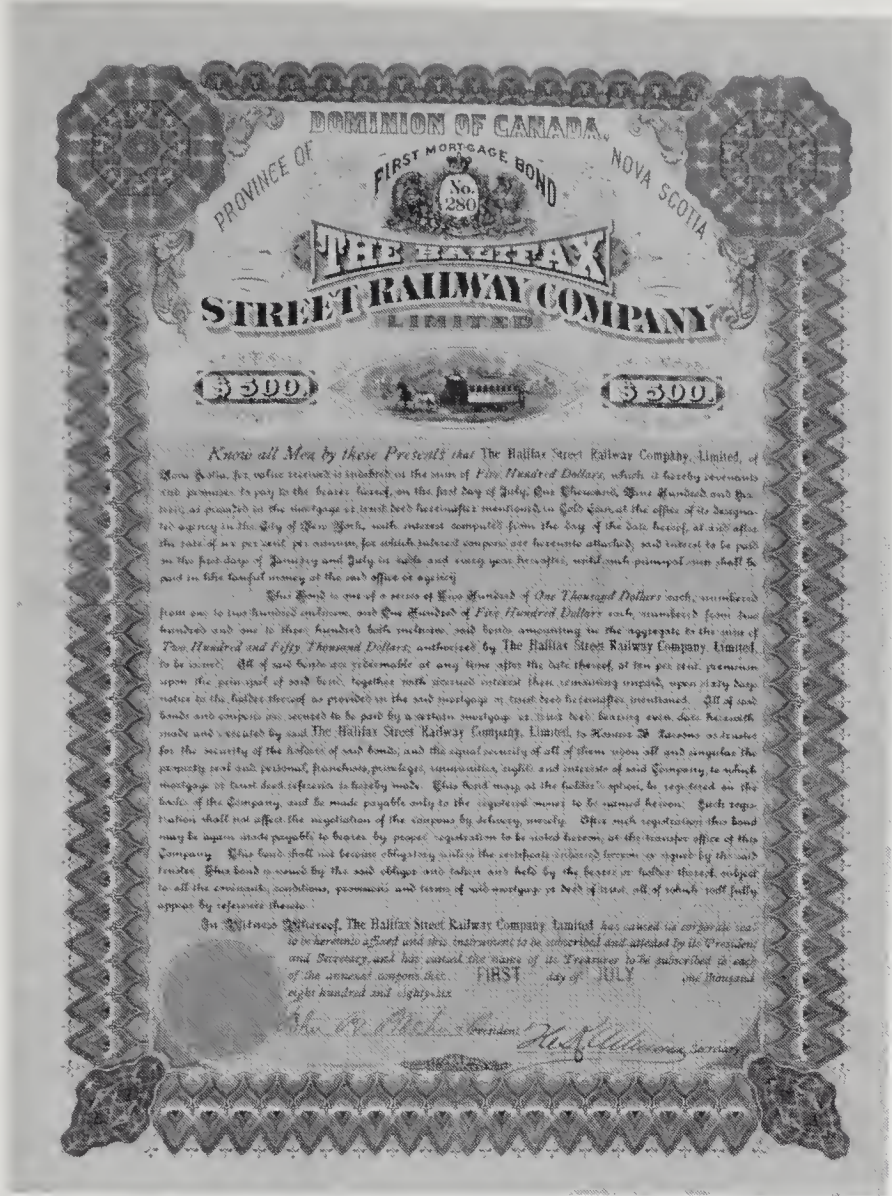 DOMINION OF CANADA,
PROVINCE OF
NOVA SCOTIA
FIRST MORTGAGE BOND
No.
280
THE HALIFAX
STREET RAILWAY COMPANY
LIMITED
$500.
$500.
Know all Men by these Presents that The Halifax Street Railway Company, Limited, of
Nova Scotia, for value received is indebted in the sum of Five Hundred Dollars, which it hereby covenants
and promises to pay to the bearer hereof, on the first day of July, One Thousand, Nine Hundred and
as provided in the mortgage or trust deed hereinafter mentioned, in Gold Coin, at the office of its designa-
ted agency in the City of New York, with interest computed from the day of the date hereof, at and after
the rate of six per cent. per annum, for which interest coupons are hereunto attached; said interest to be paid
on the first days of January and July in each and every year hereafter, until such principal sum shall be
paid in like lawful money at the said office or agency
This Bond is one of a series of Two Hundred of One Thousand Dollars each, numbered
from one to two hundred inclusive, and One Hundred of Five Hundred Dollars each, numbered from two
hundred and one to three hundred both inclusive, said bonds amounting in the aggregate to the sum of
Two Hundred and Fifty Thousand Dollars, authorized by The Halifax Street Railway Company, Limited,
to be issued. All of said bonds are redeemable at any time after the date thereof, at ten per cent. premium
upon the principal of said bond, together with accrued interest then remaining unpaid, upon sixty days
notice to the holder thereof as provided in the said mortgage or trust deed hereinafter mentioned. All of said
bonds and coupons are secured to be paid by a certain mortgage or trust deed, bearing even date herewith
made and executed by said The Halifax Street Railway Company, Limited, to Parsons as trustee
for the security of the holders of said bonds, and the equal security of all of them upon all and singular the
property real and personal, franchises, privileges, immunities, rights and interests of said Company, to which
mortgage or trust deed reference is hereby made. This bond may at the holder's option, be registered on the
books of the Company, and be made payable only to the registered owner to be named hereon. Such regis-
tration shall not affect the negotiation of the coupons by delivery, merely. After such registration this bond
may be again made payable to bearer by proper registration to be noted hereon, at the transfer office of this
Company. This bond shall not become obligatory unless the certificate indorsed hereon is signed by the said
trustee. This bond is issued by the said obligor and taken and held by the bearer or holder thereof, subject
to all the covenants, conditions, provisions and terms of said mortgage or deed of trust, all of which will fully
appear by reference thereto
In Witness Whereof, The Halifax Street Railway Company, Limited has caused its corporate seal
to be hereunto affixed and this instrument to be subscribed and attested by its President
and Secretary, and has caused the name of its Treasurer to be subscribed to each
of the annexed coupons this FIRST day of JULY one thousand
eight hundred and eighty-six
President
Secretary